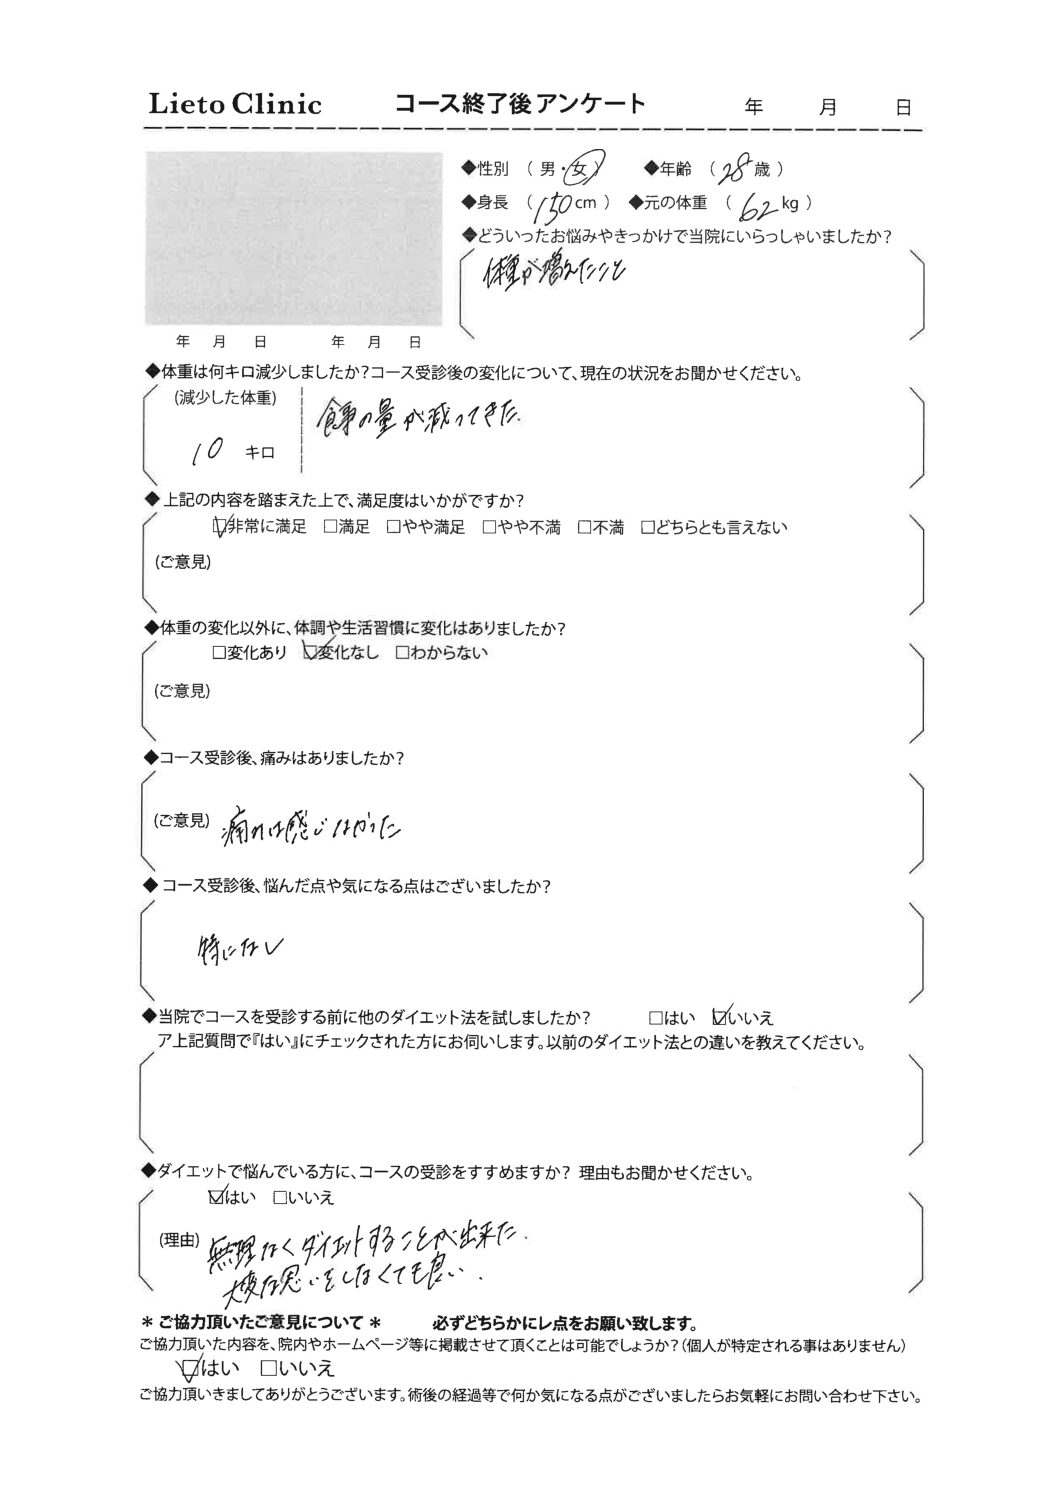 Lieto Clinic コース終了後アンケート 年 月 日
◆性別 （ 男・女 ） ◆年齢 （ 28 歳 ）
◆身長 （ 150 cm ） ◆元の体重 （ 62 kg ）
◆どういったお悩みやきっかけで当院にいらっしゃいましたか？
体重が増えたこと
年 月 日 年 月 日
◆体重は何キロ減少しましたか？コース受診後の変化について、現在の状況をお聞かせください。
(減少した体重)
食事の量が減ってきた.
10 キロ
◆ 上記の内容を踏まえた上で、満足度はいかがですか？
☑非常に満足 □満足 □やや満足 □やや不満 □不満 □どちらとも言えない
(ご意見)
◆体重の変化以外に、体調や生活習慣に変化はありましたか？
□変化あり ☑変化なし □わからない
(ご意見)
◆コース受診後、痛みはありましたか？
(ご意見) 痛みは感じなかった
◆ コース受診後、悩んだ点や気になる点はございましたか？
特になし
◆当院でコースを受診する前に他のダイエット法を試しましたか？ □はい ☑いいえ
ア上記質問で『はい』にチェックされた方にお伺いします。以前のダイエット法との違いを教えてください。
◆ダイエットで悩んでいる方に、コースの受診をすすめますか？ 理由もお聞かせください。
☑はい □いいえ
(理由) 無理なくダイエットすることが出来た.
大変な思いをしなくても良い.
＊ ご協力頂いたご意見について ＊ 必ずどちらかにレ点をお願い致します。
ご協力頂いた内容を、院内やホームページ等に掲載させて頂くことは可能でしょうか？（個人が特定される事はありません）
☑はい □いいえ
ご協力頂いきましてありがとうございます。術後の経過等で何か気になる点がございましたらお気軽にお問い合わせ下さい。